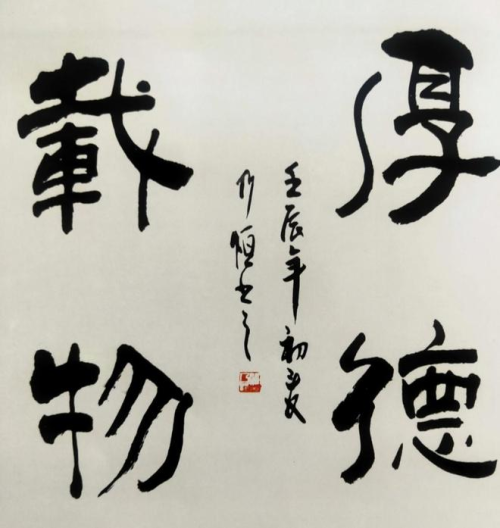 厚德
載物
壬辰年初夏
恒书之